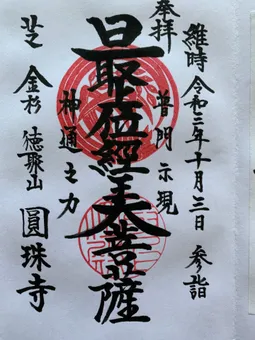 維時 令和三年十月三日 参詣
奉拝
普門示現
最位經王大菩薩
神通之力
芝 金杉 徳聚山 圓珠寺